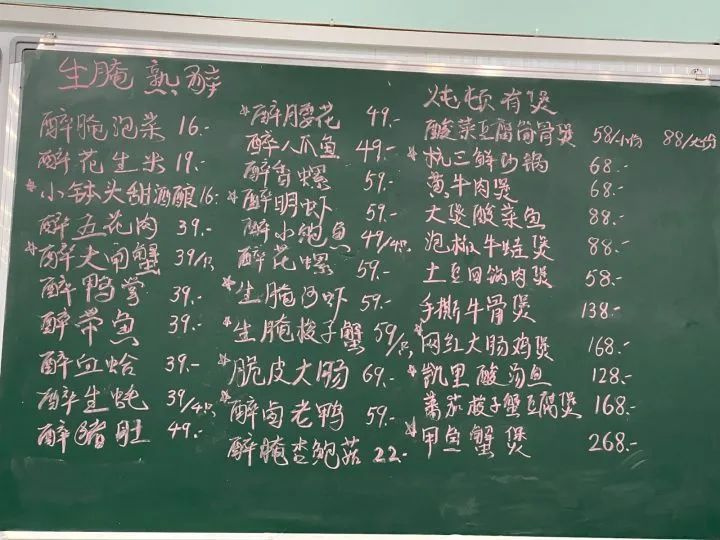 生腌熟醉
醉腌泡菜 16.-
醉花生米 19.-
*小钵头甜酒酿 16.
醉五花肉 39.-
*醉大闸蟹 39/只
醉鸭掌 39.-
醉带鱼 39.-
醉血蛤 39.-
醉生蚝 39/4只
醉猪肚 49.-
*醉腰花 49.-
醉八爪鱼 49.-
醉香螺 59.-
*醉明虾 59.-
醉小鲍鱼 49/4只
醉花螺 59.-
*生腌河虾 59.-
*生腌梭子蟹 59/只
*脆皮大肠 69.-
*醉卤老鸭 59.-
醉腌杏鲍菇 22.-
炖顿有煲
酸菜豆腐筒骨煲 58/小份 88/大份
*杭三鲜砂锅 68.-
黄牛肉煲 68.-
大煲酸菜鱼 88.-
泡椒牛蛙煲 88.-
土豆回锅肉煲 58.-
手撕牛骨煲 138.-
*网红大肠鸡煲 168.-
*凯里酸汤鱼 128.-
番茄梭子蟹豆腐煲 168.-
*甲鱼蟹煲 268.-